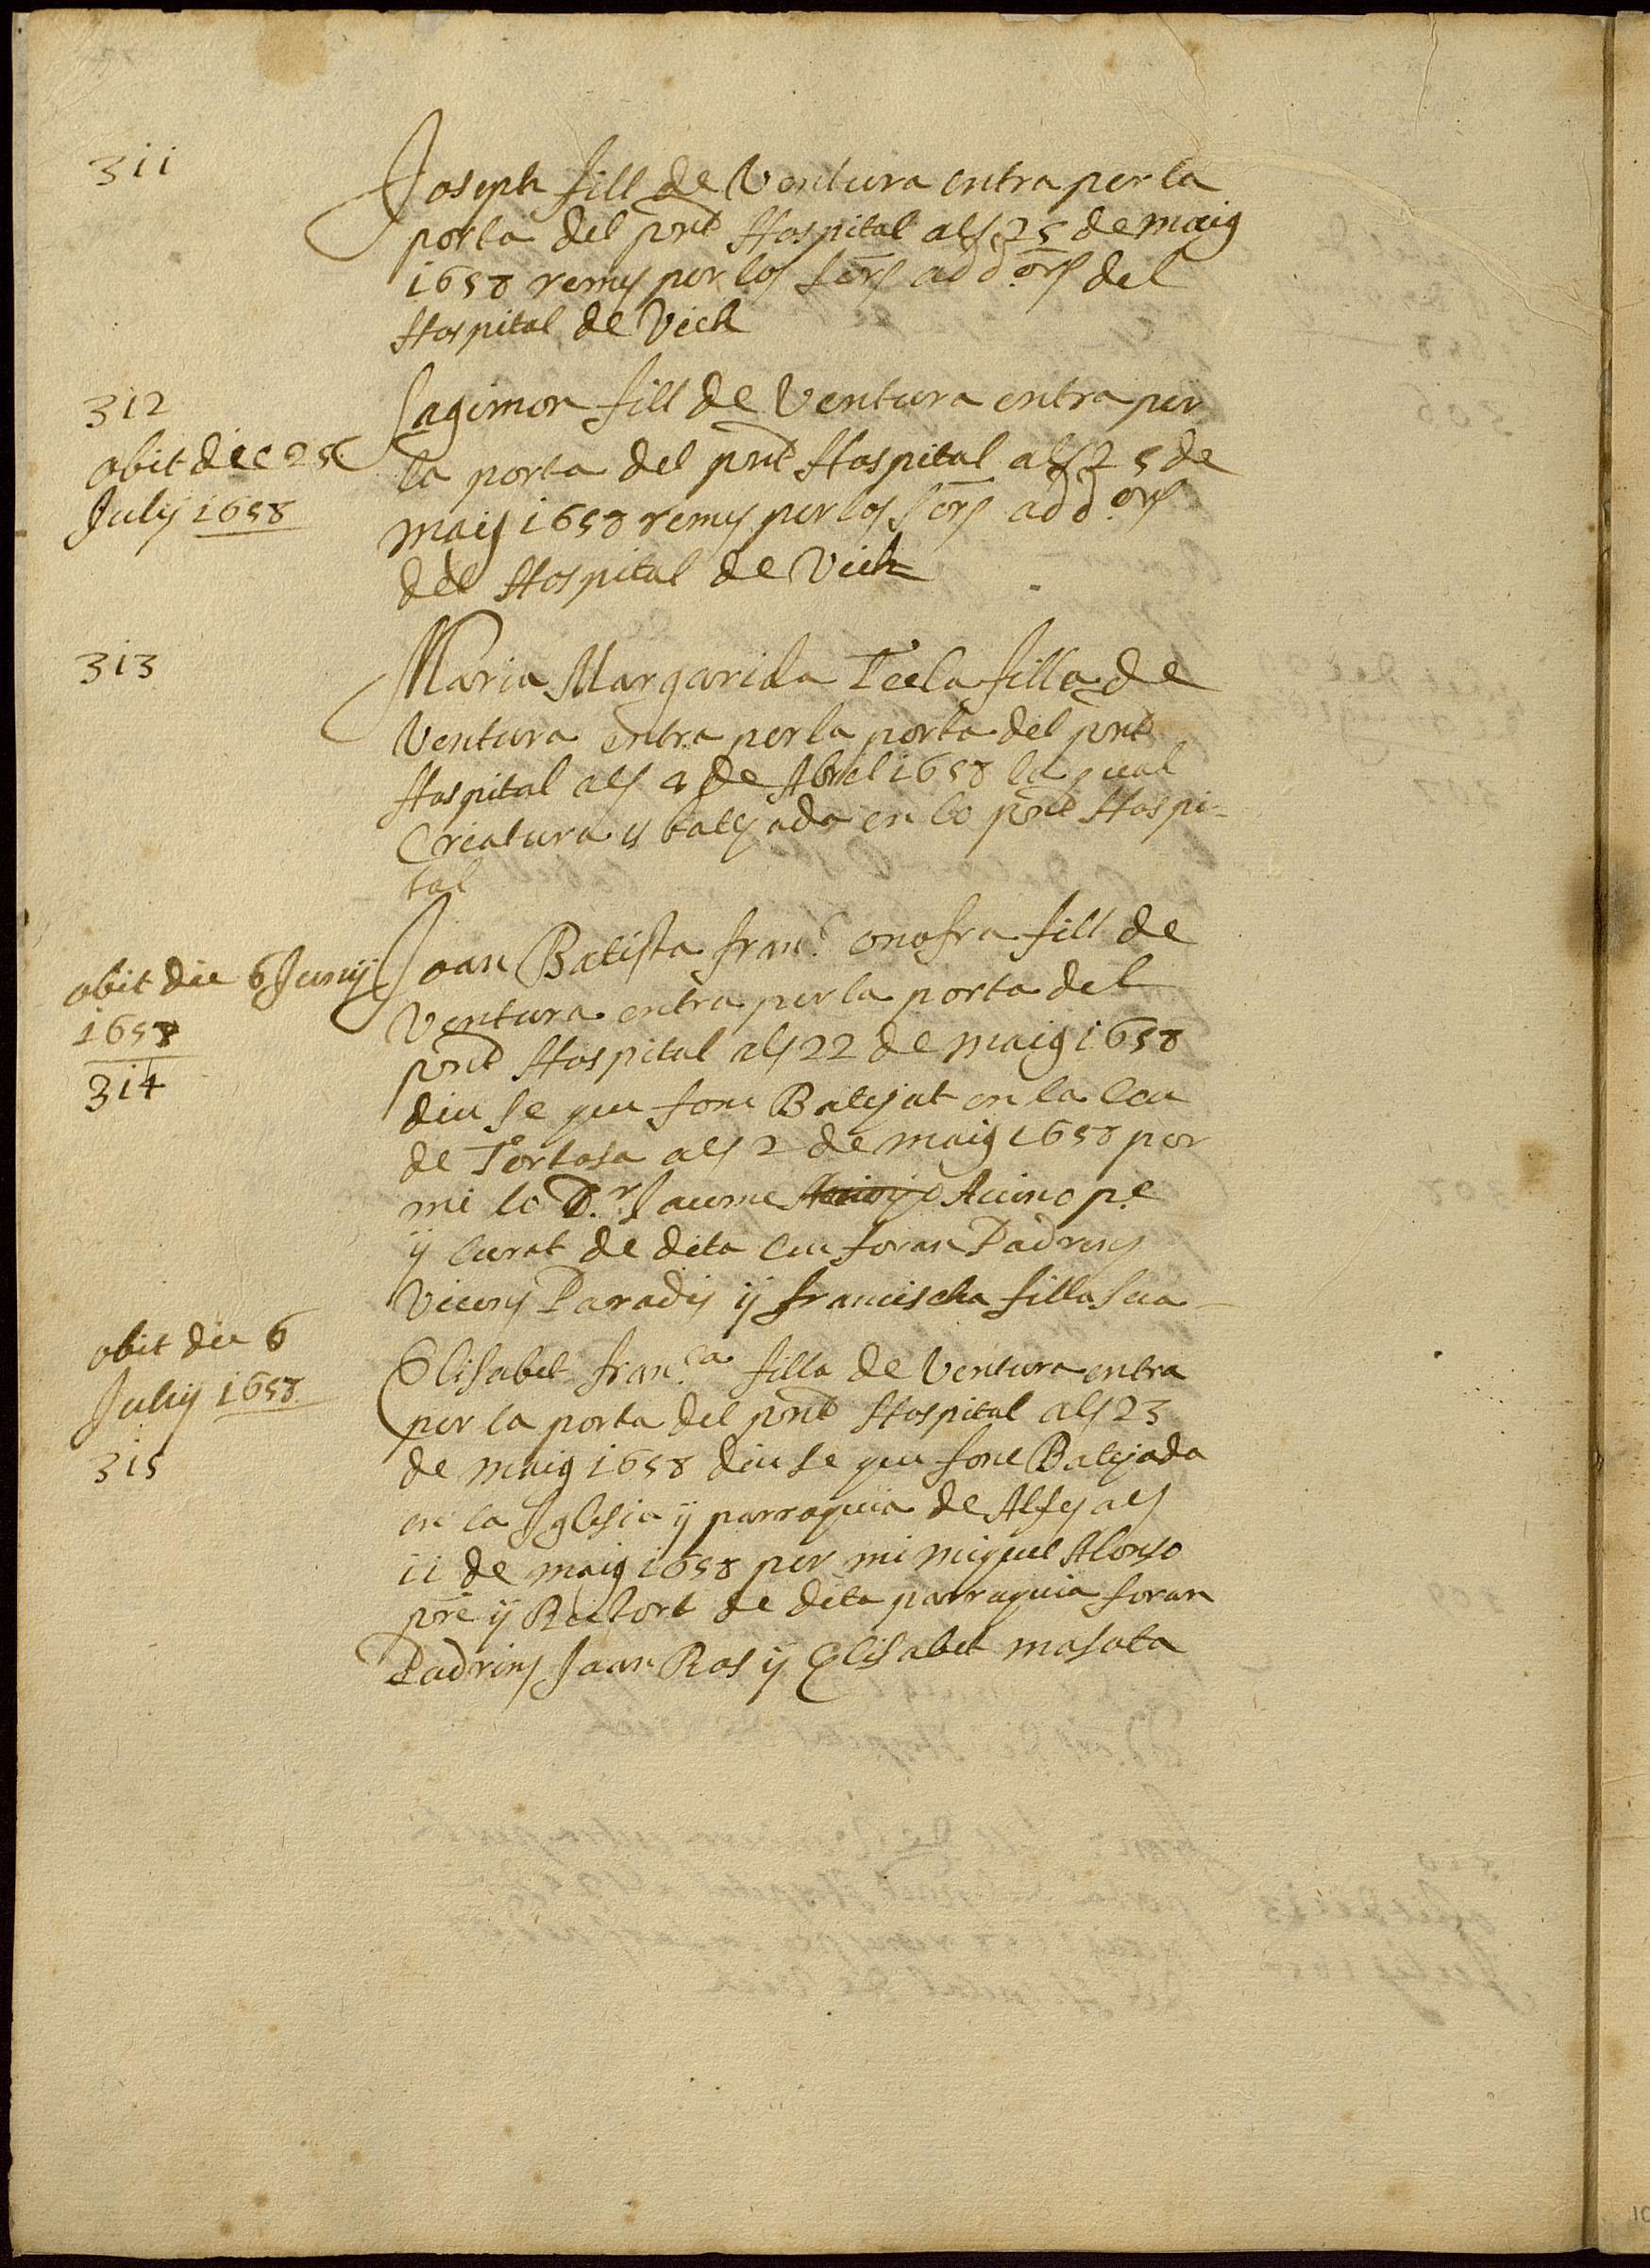 311
Joseph fill de Ventura entra per la
porta del pnt Hospital als 25 de maig
1658 remes per los Sors add.ors del
Hospital de Vich
312
obit die 25
July 1658
Sagimon fill de Ventura entra per
la porta del pnt Hospital als 25 de
maig 1658 remes per los Sors add.ors
del Hospital de Vich
313
Maria Margarida Tecla filla de
Ventura entra per la porta del pnt
Hospital als 4 de Abril 1658 la qual
Criatura es batejada en lo pnt Hospi-
tal
obit die 6 Junij
1658
314
Joan Batista Fran.c onofra fill de
Ventura entra per la porta del
pnt Hospital als 22 de maig 1658
diu se que fonc Batejat en la Ceu
de Tortosa als 2 de maig 1658 per
mi lo D.r Jaume Acino p.e
ÿ Curat de dita Ceu foran Padrins
Vicens Paradis ÿ francischa filla Sua
obit die 6
July 1658
315
Elisabet fran.ca filla de Ventura entra
per la porta del pnt Hospital als 23
de maig 1658 diu se que fonc Batejada
en la Iglesia ÿ parroquia de Alfes als
11 de maig 1658 per mi miquel Alonso
pre ÿ Rectort de dita parraquia foran
Padrins Joan Ros ÿ Elisabet masota